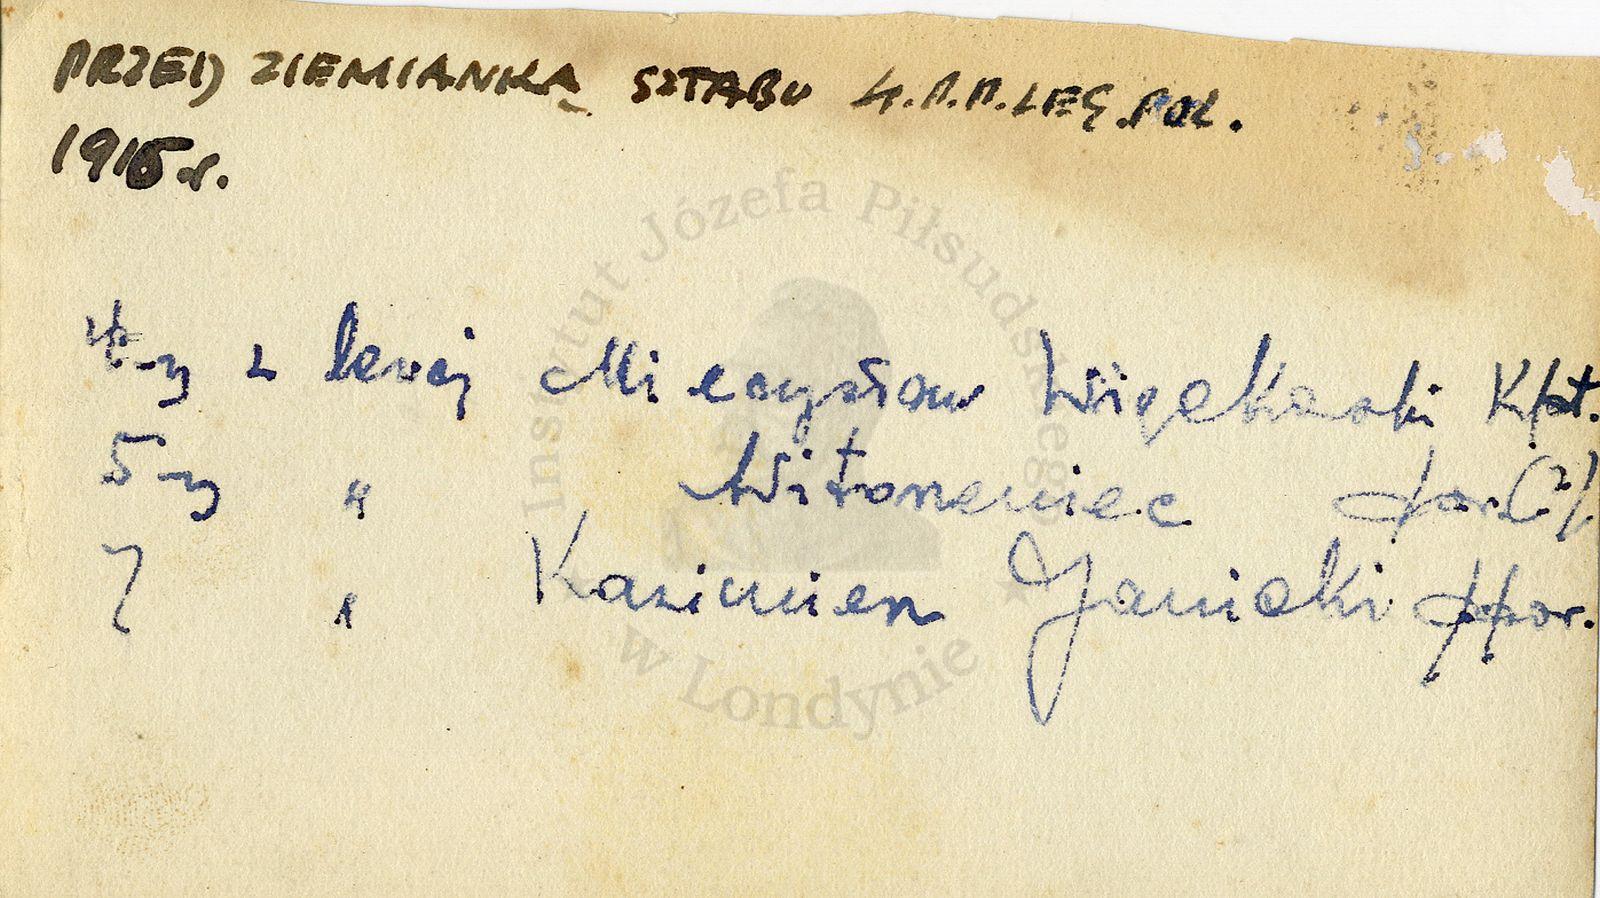 PRZED ZIEMIANKĄ SZTABU 4.P.P.LEG.POL.
1916 r.
4-ty z lewej Mieczysław Więckowski Kpt.
5-ty " Witoneniec por.(?)
7 " Kazimierz Janicki ppor.
Instytut Józefa Piłsudskiego
w Londynie